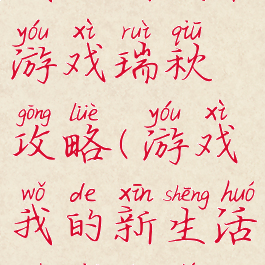 yóu xì ruì qiū
游戏瑞秋
gōng lüè yóu xì
攻略(游戏
wǒ de xīn shēng huó
我的新生活